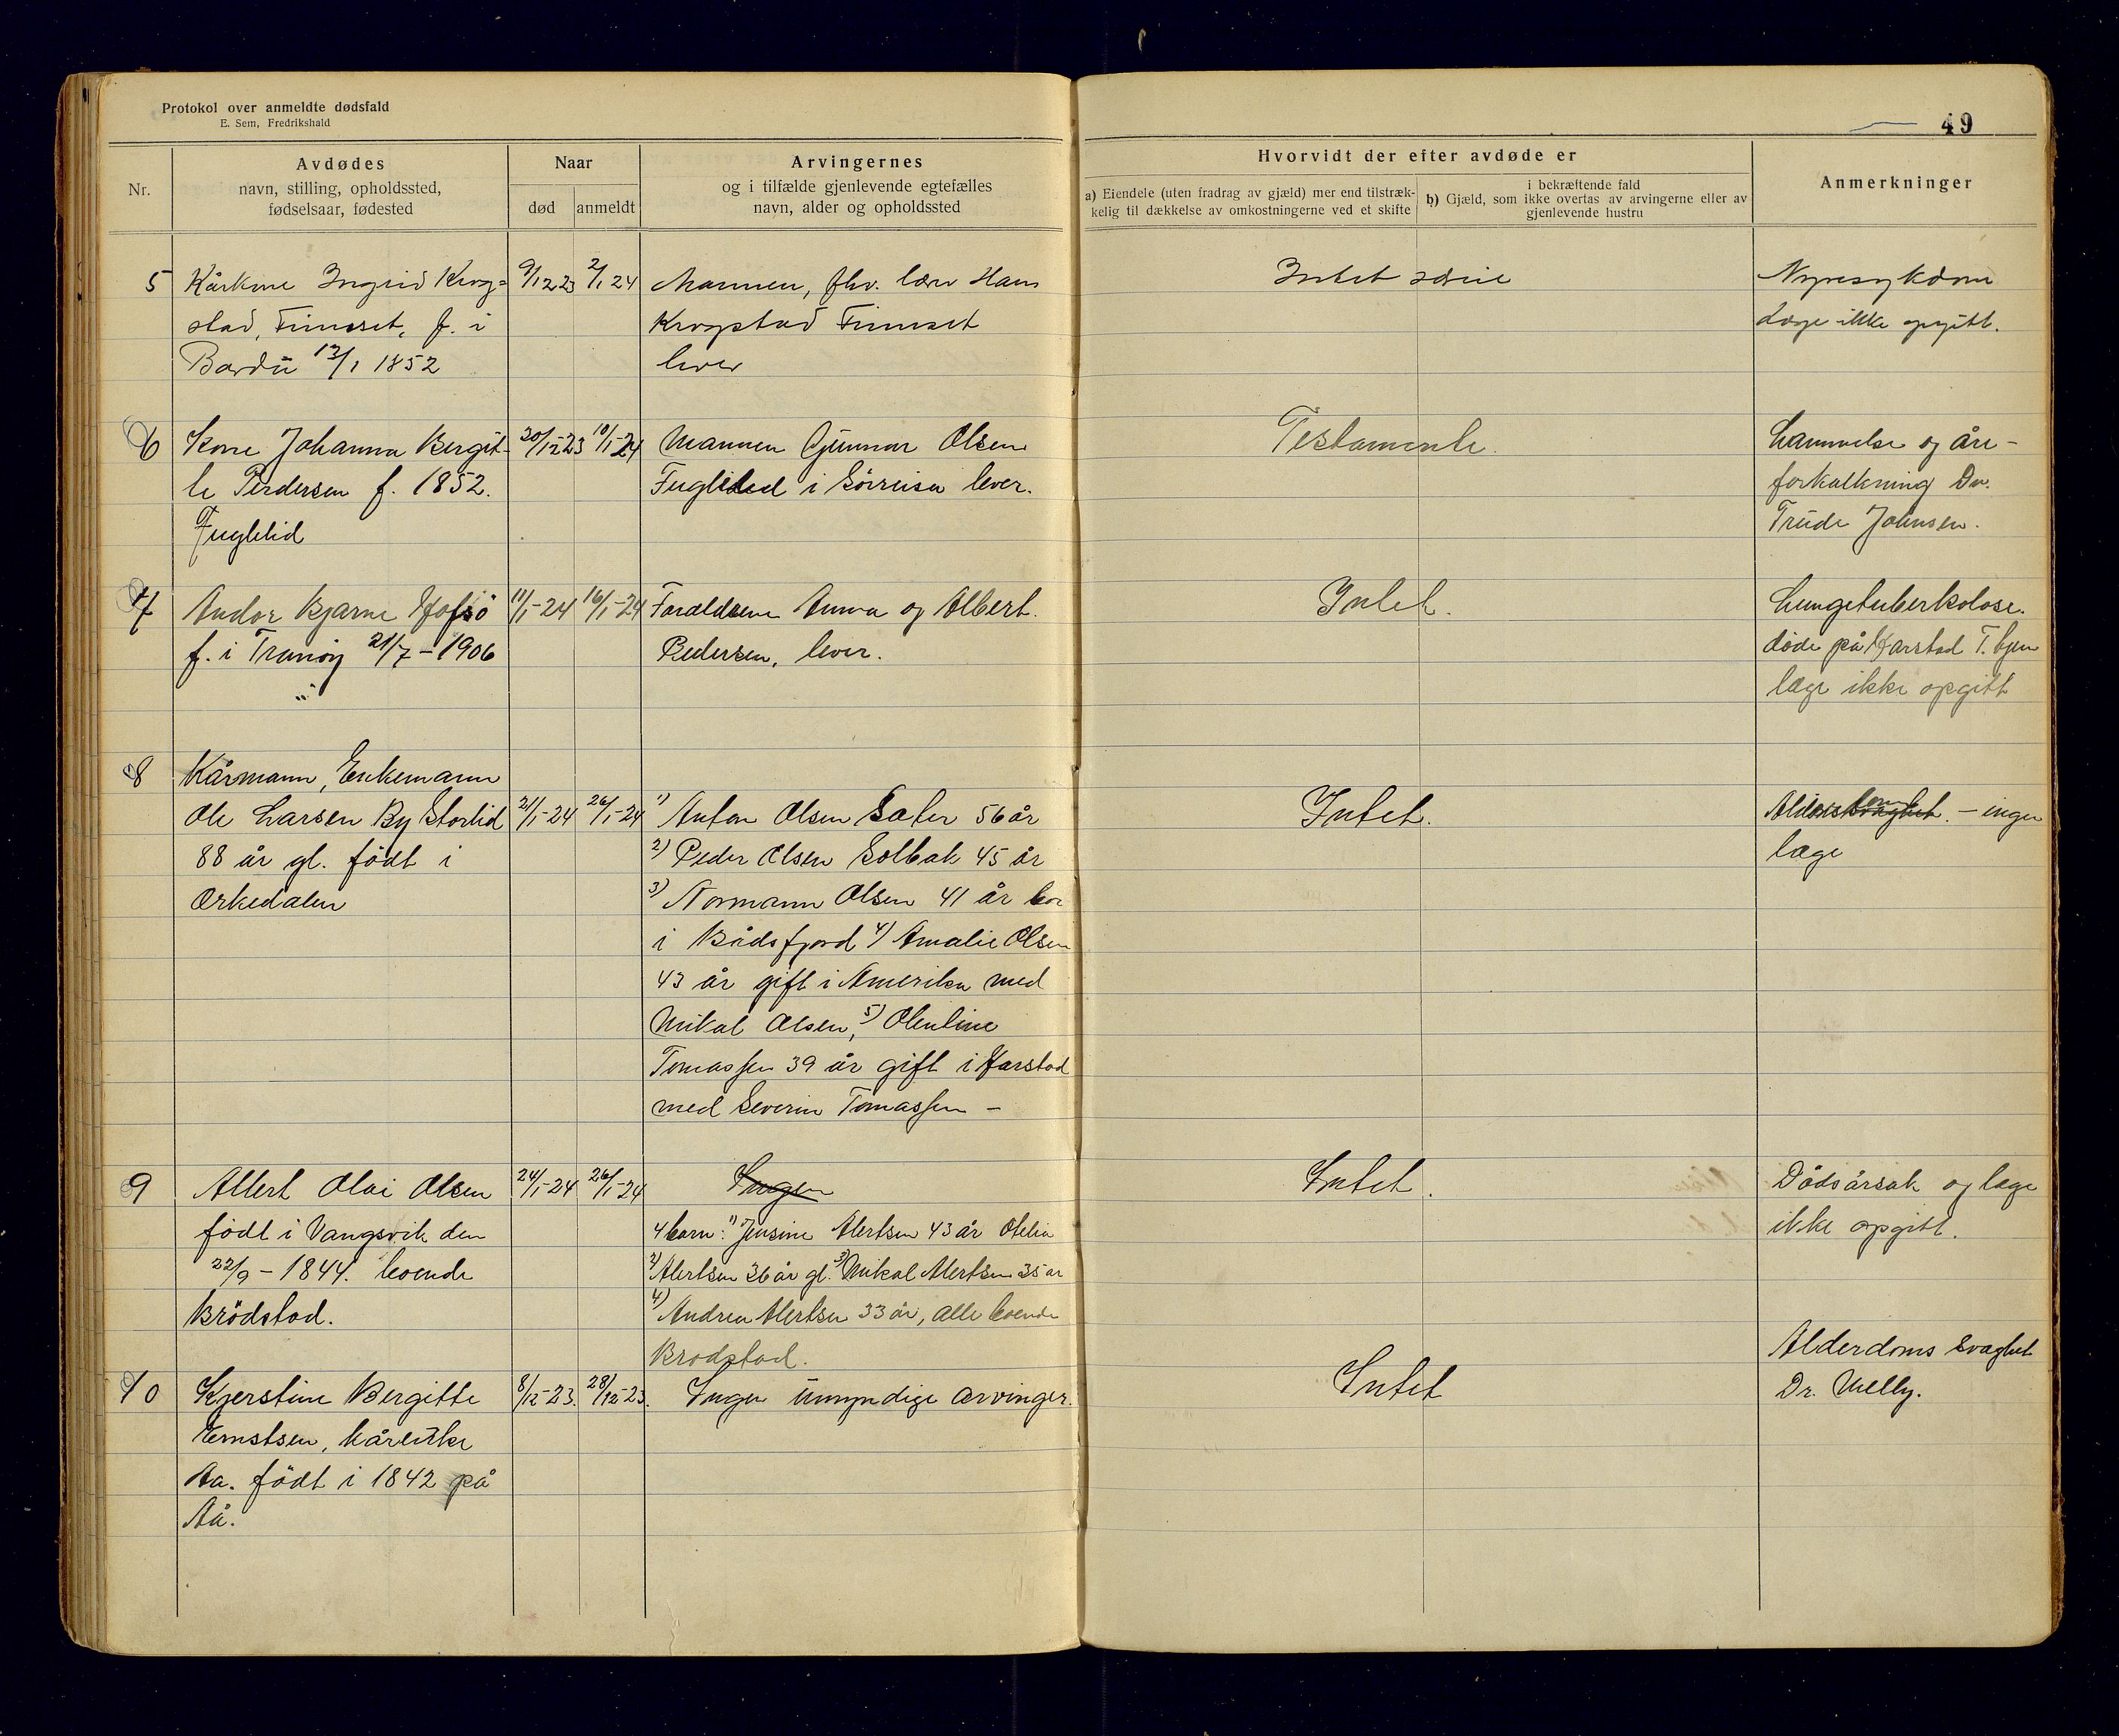 Protokol over anmeldte dødsfald
E. Sem, Fredrikshald
49
Nr.
Avdødes
navn, stilling, opholdssted,
fødselsaar, fødested
Naar
død
anmeldt
Arvingernes
og i tilfælde gjenlevende egtefælles
navn, alder og opholdssted
Hvorvidt der efter avdøde er
a) Eiendele (uten fradrag av gjæld) mer end tilstræk-
kelig til dækkelse av omkostningerne ved et skifte
i bekræftende fald
b) Gjæld, som ikke overtas av arvingerne eller av
gjenlevende hustru
Anmerkninger
5
Kårkone Ingrid Krog=
stad, Finnset, f. i
Bardu 12/1 1852
9/12 23
2/1 24
Mannen, fhv. lærer Hans
Krogstad Finnset
lever
Intet
Nyresykdom
Læge ikke opgitt.
6
Kone Johanna Bergit-
te Perdersen f. 1852.
Fuglelid
20/12-23
10/1-24
Mannen Gunnar Olsen
Fuglelid i Sörreisa lever.
Testamente.
Lammelse og åre-
forkalkning Dr.
Trude Johnsen.
7
Andor Bjarne Hofsö
f. i Tranöy 21/7-1906
11/1-24
16/1-24
Foreldrene Anna og Albert.
Pedersen, lever.
Intet.
Lungetuberkolose.
döde på Harstad T. hjem
læge ikke opgitt
8
Kårmann, Enkemann
Ole Larsen By Storlid
88 år gl. födt i
Orkedalen
21/1-24
26/1-24
1) Anton Olsen Sæter 56 år
2) Peder Olsen Solbak 45 år
3) Normann Olsen 41 år bor
i Bådsfjord 4) Amalie Olsen
43 år gift i Amerika med
Mikal Olsen, 5) Olenline
Tomassen 39 år gift i Harstad
med Severin Tomassen -
Intet.
- ingen
læge
9
Albert Olai Olsen
födt i Vangsvik den
22/9-1844. boende
Brödstad.
24/1-24
26/1-24
Ingen
4 barn: 1) Jensine Alertsen 43 år Otelia
2) Alertsen 36 år gl. 3) Mikal Alertsen 35 år
4) Andrea Alertsen 33 år, alle boende
Brodstad.
Intet.
Dödsårsak og læge
ikke opgitt.
10
Kjerstine Bergitte
Ernstsen, kårenke
Aa. födt i 1842 på
Aå.
8/12-23.
28/12-23.
Ingen umyndige arvinger.
Intet
Alderdoms svaghet
Dr.